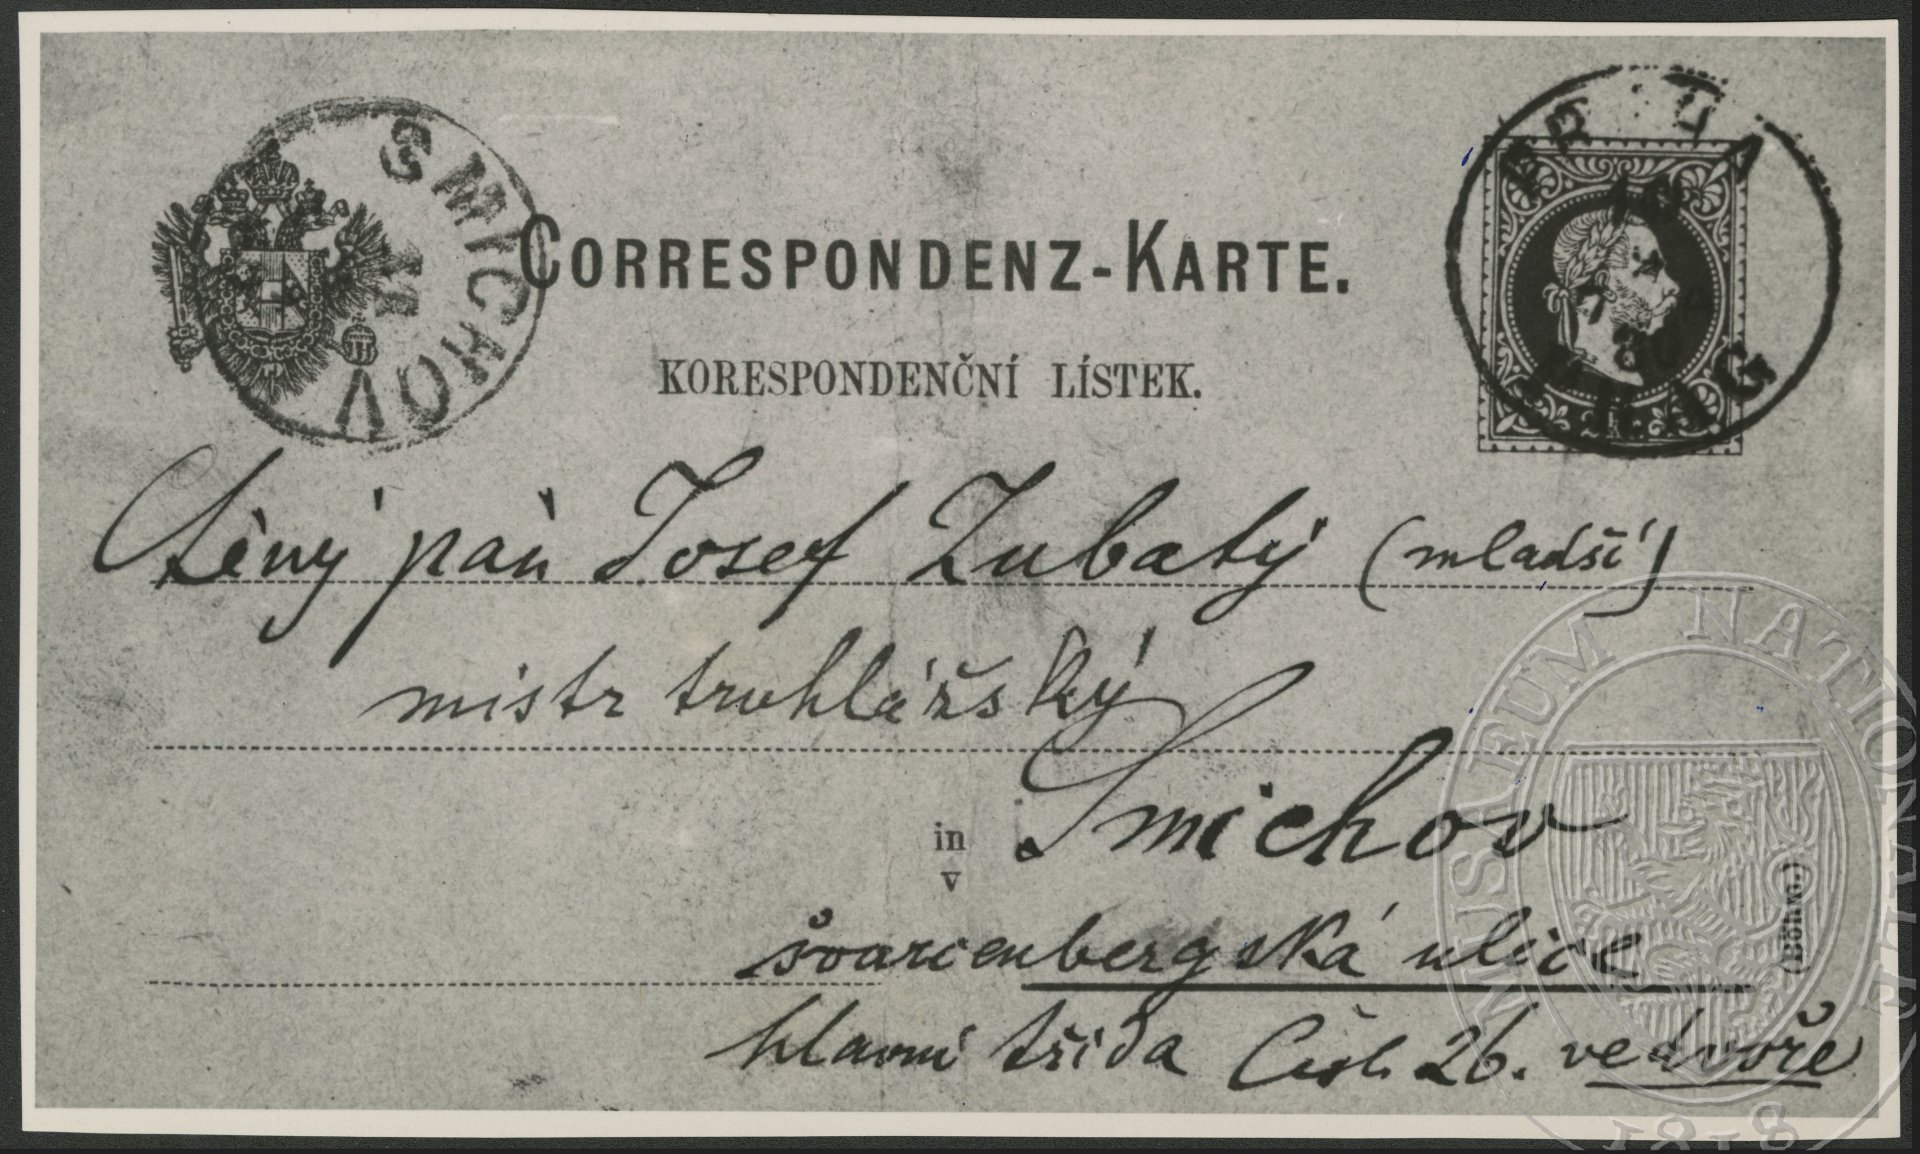 SMICHOV
PRAHA
PRAG
CORRESPONDENZ-KARTE.
KORESPONDENČNÍ LÍSTEK.
Ctěný pán Josef Zubatý (mladší)
mistr truhlářský
in Smichov
v
švarcenbergská ulice
(Böhm.)
hlavní třída Čísl. 26. ve dvoře
MUSAEUM NATIONALE
1818